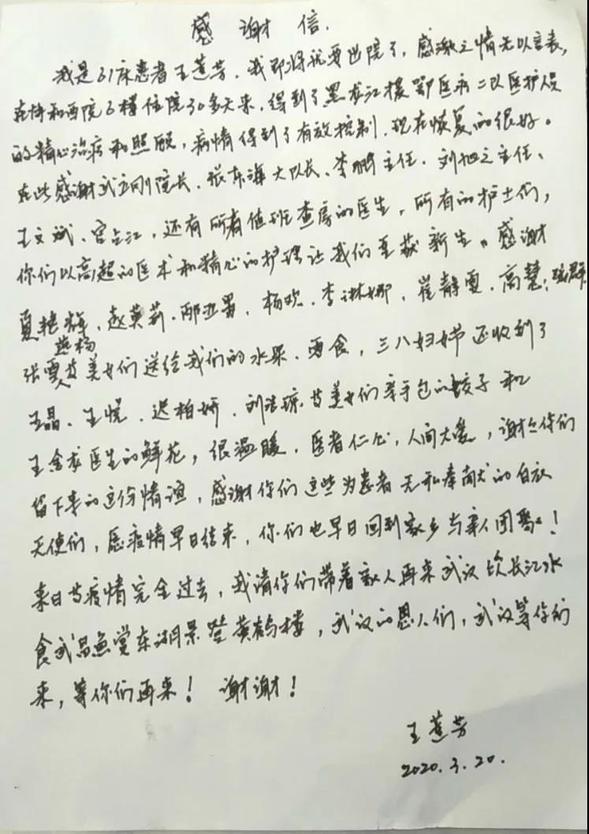 感谢信
我是31床患者王莲芳,我即将就要出院了,感激之情无以言表,
在协和西院6楼住院30多天来,得到了黑龙江援鄂医疗二队医护人员
的精心治疗和照顾,病情得到了有效控制,现在恢复的很好。
在此感谢武立刚院长、张东海大队长、李鹏主任、刘主任、
王文斌、宫占江,还有所有值班查房的医生,所有的护士们,
你们以高超的医术和精心的护理让我们重获新生。感谢
夏艳辉、赵英莉、邢、杨欢、李琳娜、崔静夏、高慧、
张雪等美女们送给我们的水果、面食,三八妇女节还收到了
王晶、王悦、迟柏妍、刘洪琼等美女们亲手包的饺子和
王金龙医生的鲜花,很温暖,医者仁心,人间大爱,谢谢你们
留下来的这份情谊,感谢你们这些为患者无私奉献的白衣
天使们,愿疫情早日结束,你们也早日回到家乡与亲人团聚!
来日等疫情完全过去,我请你们带着家人再来武汉饮长江水
食武昌鱼赏东湖景登黄鹤楼,武汉的恩人们,武汉等你们
来,等你们再来!谢谢!
王莲芳
2020.3.20.